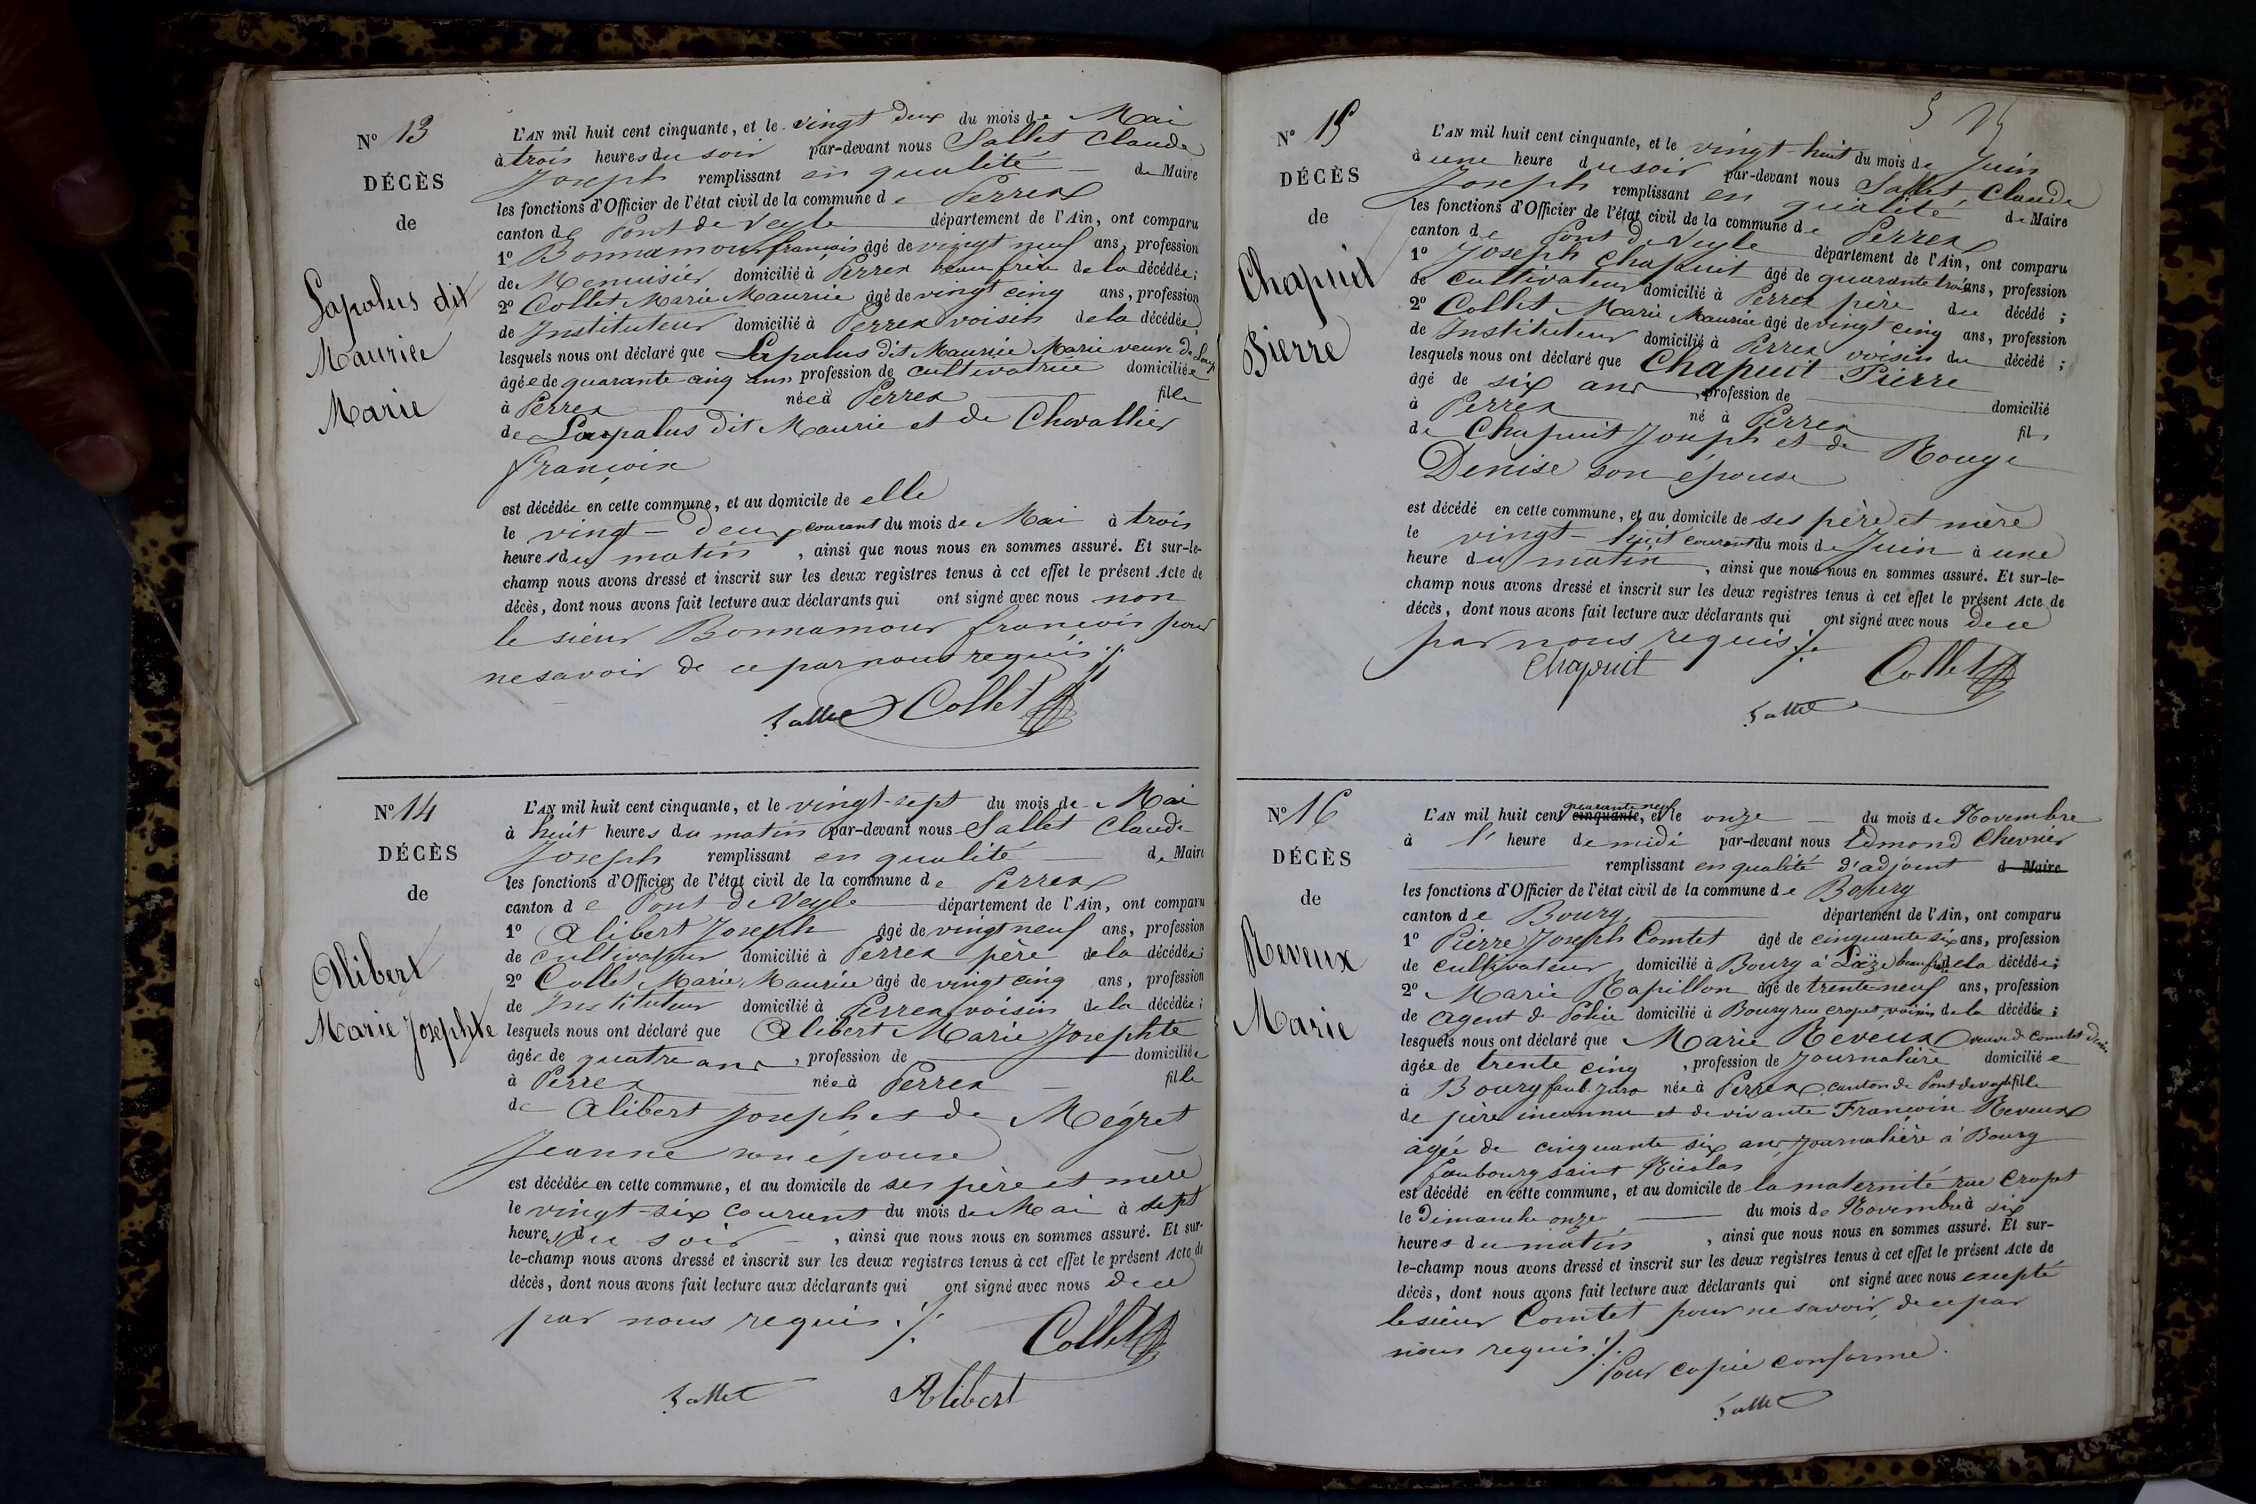 N° 13
DÉCÈS
de
Lapalus dit
Maurice
Marie
L'AN mil huit cent cinquante, et le vingt deux du mois de Mai
à trois heures du soir par-devant nous Sallet Claude
Joseph remplissant en qualité de Maire
les fonctions d'Officier de l'état civil de la commune de Perrex
canton de Pont de Veyle département de l'Ain, ont comparu
1° Bonnamour françois âgé de vingt neuf ans, profession
de Menuisier domicilié à Perrex beau frère de la décédée;
2° Collet Marie Maurice âgé de vingt cinq ans, profession
de Instituteur domicilié à Perrex voisin de la décédée;
lesquels nous ont déclaré que Lapalus dit Maurice Marie veuve de
âgée de quarante cinq ans profession de cultivatrice domiciliée
à Perrex née à Perrex fille
de Lapalus dit Maurie et de Chevallier
françoise
est décédée en cette commune, et au domicile de elle
le vingt-deux courant du mois de Mai à trois
heures du matin, ainsi que nous nous en sommes assuré. Et sur-le-
champ nous avons dressé et inscrit sur les deux registres tenus à cet effet le présent Acte de
décès, dont nous avons fait lecture aux déclarants qui ont signé avec nous non
le sieur Bonnamour françois pour
ne savoir de ce par nous requis ./.
Sallet Collet
N° 14
DÉCÈS
de
Alibert
Marie Josephte
L'AN mil huit cent cinquante, et le vingt-sept du mois de Mai
à huit heures du matin par-devant nous Sallet Claude
Joseph remplissant en qualité de Maire
les fonctions d'Officier de l'état civil de la commune de Perrex
canton de Pont de Veyle département de l'Ain, ont comparu
1° Alibert Joseph âgé de vingt neuf ans, profession
de cultivateur domicilié à Perrex père de la décédée;
2° Collet Marie Maurice âgé de vingt cinq ans, profession
de Instituteur domicilié à Perrex voisin de la décédée;
lesquels nous ont déclaré que Alibert Marie Josephte
âgée de quatre ans, profession de domiciliée
à Perrex née à Perrex fille
de Alibert Joseph et de Mégret
Jeanne son épouse
est décédée en cette commune, et au domicile de ses père et mère
le vingt-six courant du mois de Mai à sept
heures du soir, ainsi que nous nous en sommes assuré. Et sur-
le-champ nous avons dressé et inscrit sur les deux registres tenus à cet effet le présent Acte de
décès, dont nous avons fait lecture aux déclarants qui ont signé avec nous de ce
par nous requis ./.
Collet
Sallet Alibert
N° 15
DÉCÈS
de
Chapuit
Pierre
L'AN mil huit cent cinquante, et le vingt-huit du mois de Juin
à une heure du soir par-devant nous Sallet Claude
Joseph remplissant en qualité de Maire
les fonctions d'Officier de l'état civil de la commune de Perrex
canton de Pont de Veyle département de l'Ain, ont comparu
1° Joseph Chapuit âgé de quarante trois ans, profession
de cultivateur domicilié à Perrex père du décédé;
2° Collet Marie Maurice âgé de vingt cinq ans, profession
de Instituteur domicilié à Perrex voisin du décédé;
lesquels nous ont déclaré que Chapuit Pierre
âgé de six ans, profession de domicilié
à Perrex né à Perrex fils
de Chapuit Joseph et de Rouge
Denise son épouse
est décédé en cette commune, et au domicile de ses père et mère
le vingt-huit courant du mois de Juin à une
heure du matin, ainsi que nous nous en sommes assuré. Et sur-le-
champ nous avons dressé et inscrit sur les deux registres tenus à cet effet le présent Acte de
décès, dont nous avons fait lecture aux déclarants qui ont signé avec nous de ce
par nous requis ./.
Chapuit Collet
Sallet
N° 16
DÉCÈS
de
Reveux
Marie
L'AN mil huit cent quarante neuf cinquante, et le onze du mois de Novembre
à l' heure de midi par-devant nous Edmond Chevrier
remplissant en qualité d'adjoint d Maire
les fonctions d'Officier de l'état civil de la commune de Bourg
canton de Bourg département de l'Ain, ont comparu
1° Pierre Joseph Comtet âgé de cinquante six ans, profession
de cultivateur domicilié à Bourg à Lazé beau de la décédée;
2° Marie Rapillon âgé de trente neuf ans, profession
de agent de Police domicilié à Bourg rue Cropet, voisin de la décédée;
lesquels nous ont déclaré que Marie Reveux veuve de Comtet Denis
âgée de trente cinq, profession de Journalière domiciliée
à Bourg faub. Jura née à Perrex canton de Pont de Veyle fille
de père inconnu et de vivante Françoise Reveux
âgée de cinquante six ans Journalière à Bourg
faubourg saint Nicolas
est décédé en cette commune, et au domicile de la maternité rue Cropet
le Dimanche onze du mois de Novembre à six
heures du matin, ainsi que nous nous en sommes assuré. Et sur-
le-champ nous avons dressé et inscrit sur les deux registres tenus à cet effet le présent Acte de
décès, dont nous avons fait lecture aux déclarants qui ont signé avec nous excepté
le sieur Comtet pour ne savoir, de ce par
nous requis ./.
Pour copie conforme.
Sallet